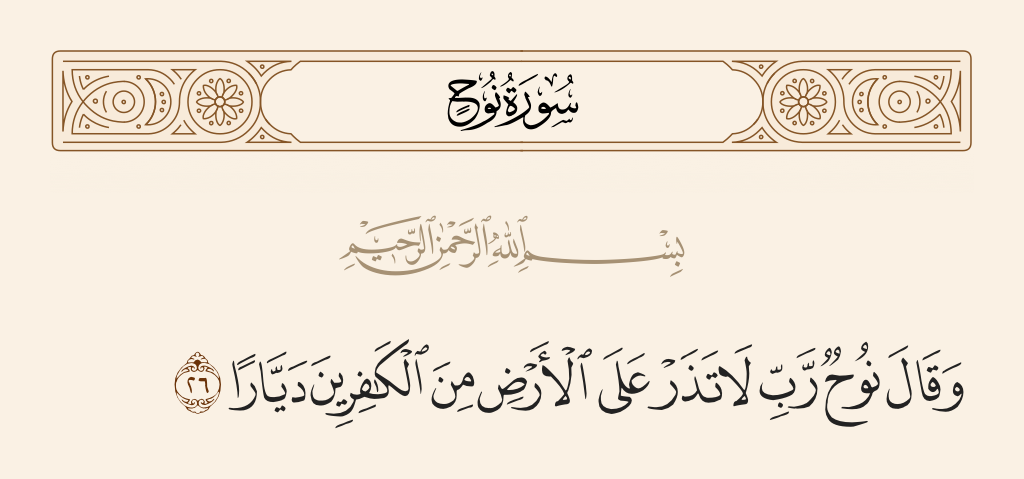 سُورَةُ نُوحٍ
بِسْمِ ٱللَّهِ ٱلرَّحْمَٰنِ ٱلرَّحِيمِ
وَقَالَ نُوحٌ رَّبِّ لَا تَذَرْ عَلَى ٱلْأَرْضِ مِنَ ٱلْكَٰفِرِينَ دَيَّارًا ٢٦